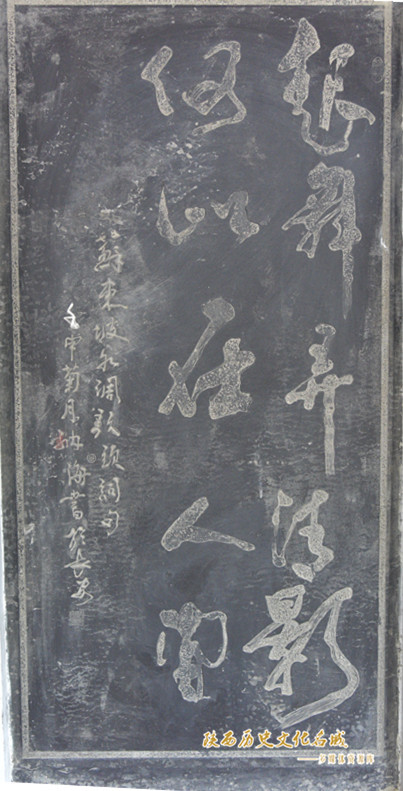 起舞弄清影
何似在人間
蘇東坡水調歌頭詞句
壬申菊月海書於長安
陕西历史文化名城
——多媒体资源库